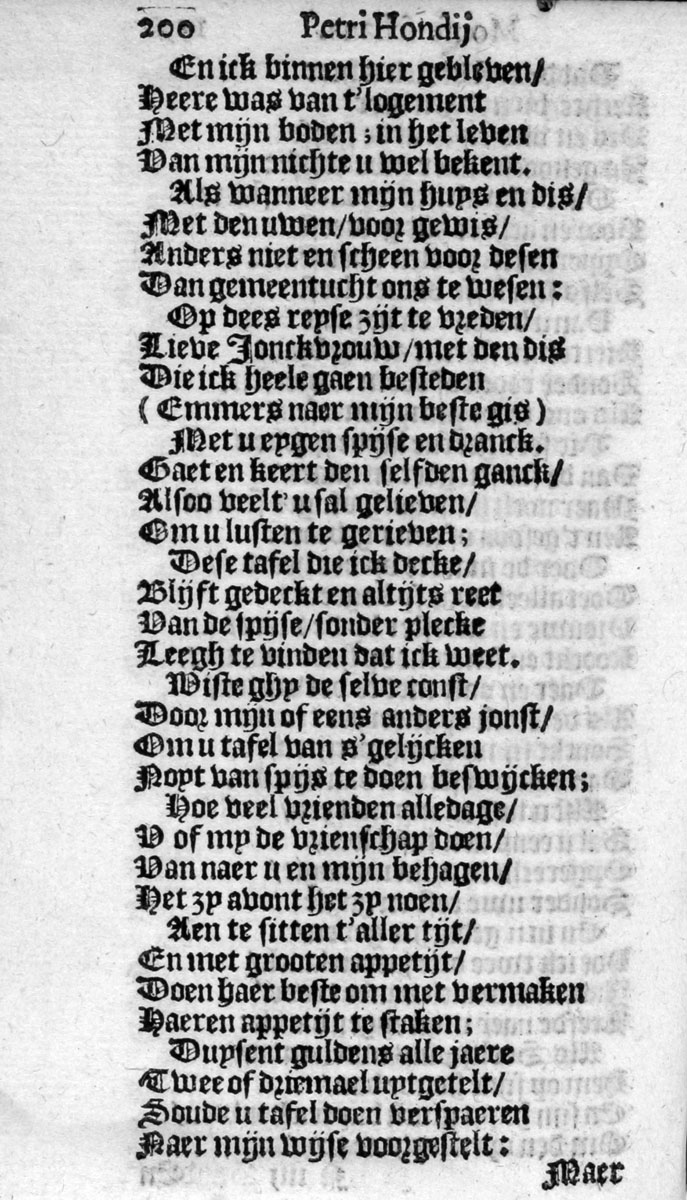 200 Petri Hondij
En ick binnen hier gebleven/
Heere was van t'logement
Met mijn boden; in het leven
Van mijn nichte u wel bekent.
Als wanneer mijn huys en dis/
Met den uwen/voor gewis/
Anders niet en scheen voor desen
Dan gemeentucht ons te wesen:
Op dees reyse zijt te vreden/
Lieve Jonckvrouw/met den dis
Die ick heele gaen besteden
(Emmers naer mijn beste gis)
Met u eygen spijse en dranck.
Gaet en keert den selfden ganck/
Alsoo veelt' u sal gelieven/
Om u lusten te gerieven;
Dese tafel die ick decke/
Blijft gedeckt en altijts reet
Van de spijse/sonder plecke
Leegh te vinden dat ick weet.
Wiste ghy de selve const/
Door mijn of eens anders jonst/
Om u tafel van s'gelijcken
Noyt van spijs te doen beswijcken;
Hoe veel vrienden alledage/
V of my de vrienschap doen/
Van naer u en mijn behagen/
Het zy avont het zy noen/
Aen te sitten t'aller tijt/
En met grooten appetijt/
Doen haer beste om met vermaken
Haeren appetijt te staken;
Duysent guldens alle jaere
Twee of driemael uytgetelt/
Soude u tafel doen verspaeren
Naer mijn wijse voorgestelt:
Maer